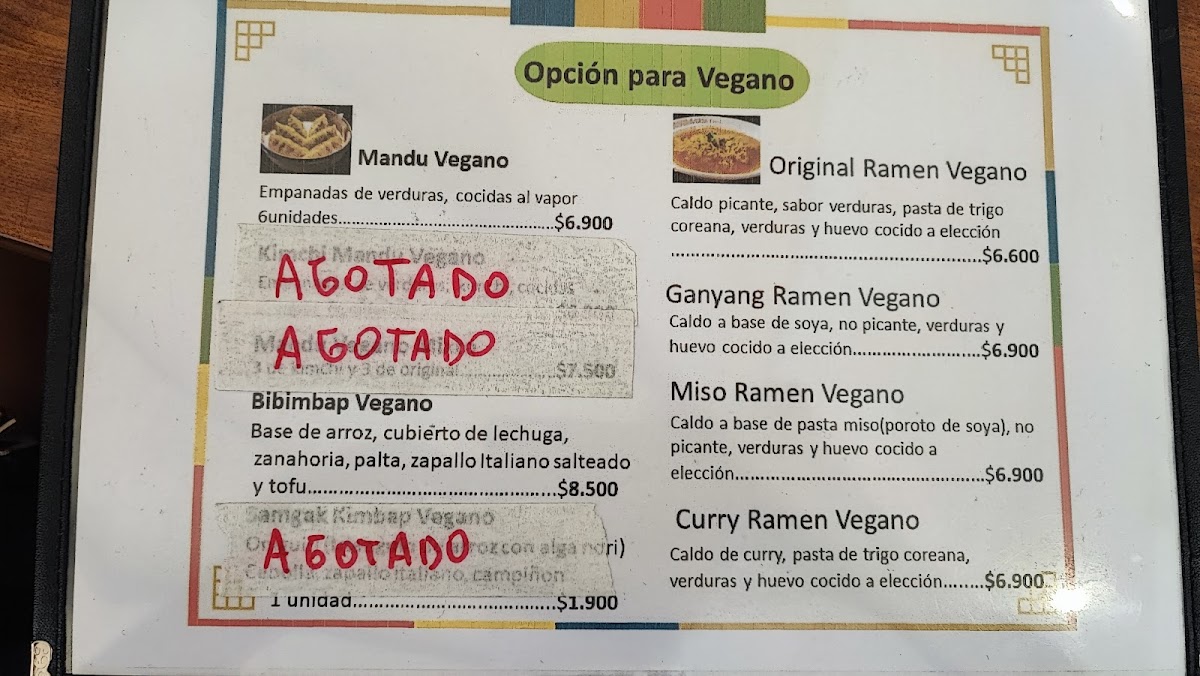 Opción para Vegano
Mandu Vegano
Empanadas de verduras, cocidas al vapor
6unidades..........................................$6.900
Kimchi Mandu Vegano
AGOTADO
AGOTADO
3 de kimchi y 3 de original....................$7.500
Bibimbap Vegano
Base de arroz, cubierto de lechuga,
zanahoria, palta, zapallo Italiano salteado
y tofu................................................$8.500
Samgak Kimbap Vegano
con alga nori)
AGOTADO
Cebolla, zapallo Italiano, campiñon
1 unidad.......................................$1.900
Original Ramen Vegano
Caldo picante, sabor verduras, pasta de trigo
coreana, verduras y huevo cocido a elección
..............................................................$6.600
Ganyang Ramen Vegano
Caldo a base de soya, no picante, verduras y
huevo cocido a elección.........................$6.900
Miso Ramen Vegano
Caldo a base de pasta miso(poroto de soya), no
picante, verduras y huevo cocido a
elección..................................................$6.900
Curry Ramen Vegano
Caldo de curry, pasta de trigo coreana,
verduras y huevo cocido a elección........$6.900